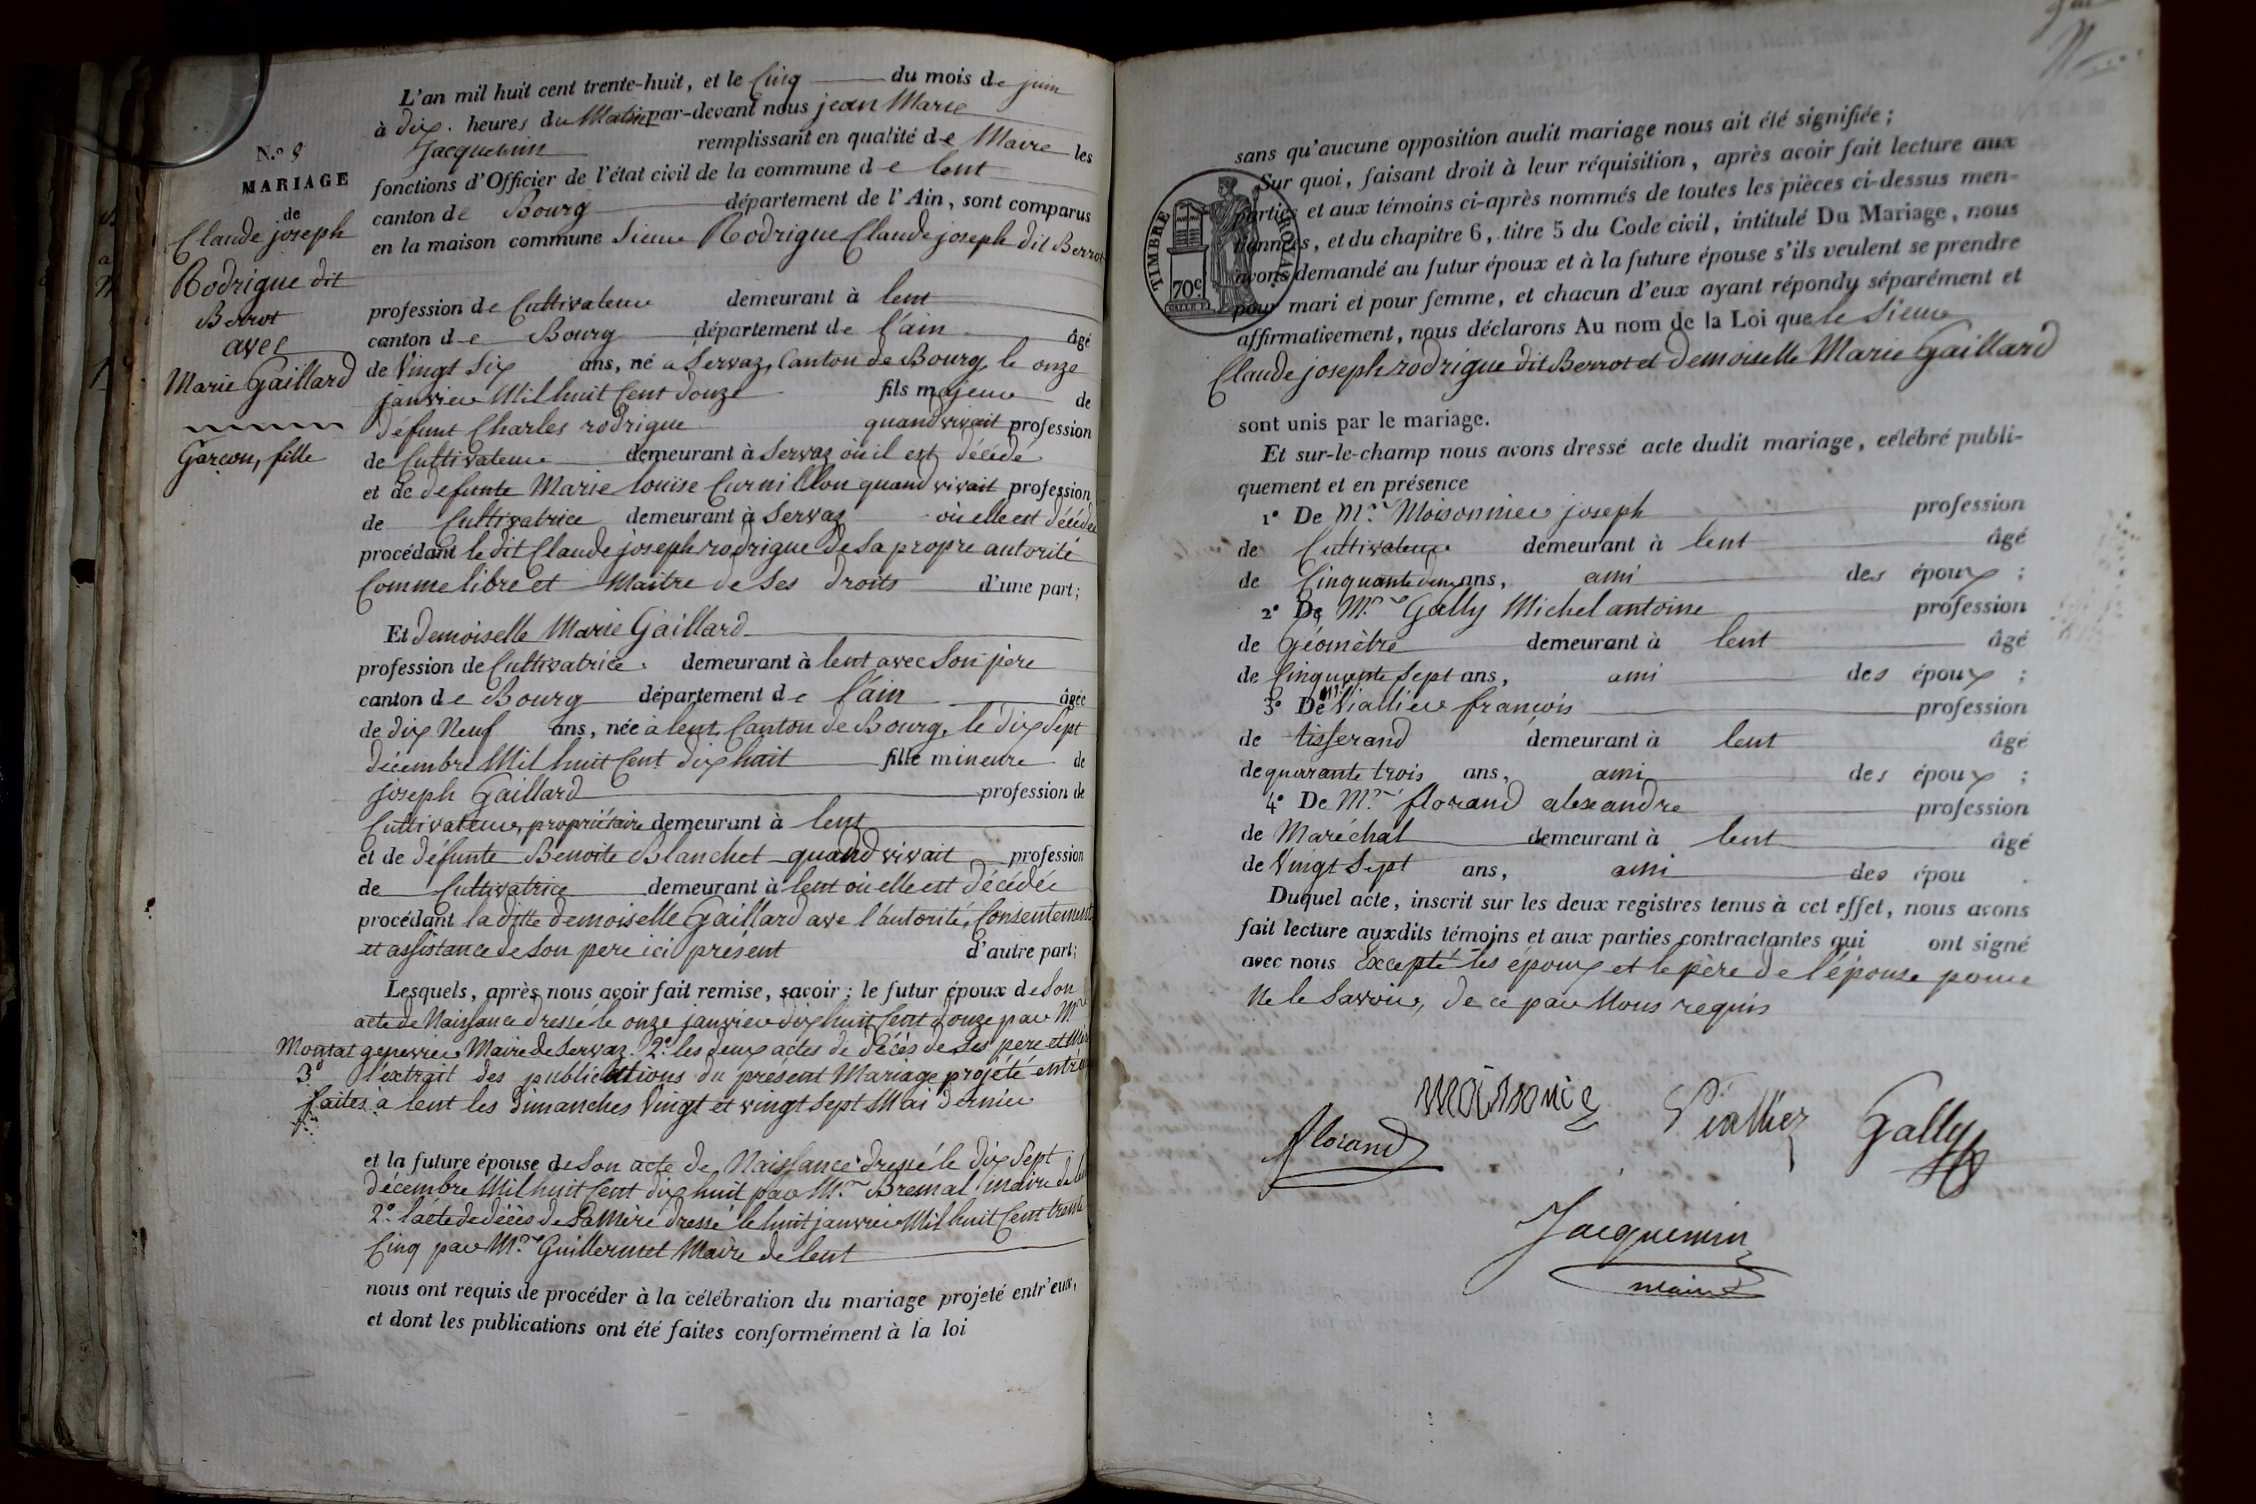 L'an mil huit cent trente-huit, et le Cinq du mois de juin
à dix heures du Matin par-devant nous jean Marie
Jacquemin remplissant en qualité de Maire les
fonctions d'Officier de l'état civil de la commune de lent
canton de Bourg département de l'Ain, sont comparus
en la maison commune Sieur Rodrigue Claude joseph dit Berrot
profession de Cultivateur demeurant à lent
canton de Bourg département de l'ain âgé
de Vingt Six ans, né a Servaz, Canton de Bourg, le onze
janvier Mil huit Cent douze fils majeur de
défunt Charles rodrigue quand vivait profession
de Cultivateur demeurant à Servaz où il est décédé
et de defunte Marie louise Curnillon quand vivait profession
de Cultivatrice demeurant à Servaz où elle est décédée
procédant le dit Claude joseph rodrigue de sa propre autorité
Comme libre et Maître de Ses droits d'une part;
Et demoiselle Marie Gaillard
profession de Cultivatrice demeurant à lent avec Son père
canton de Bourg département de l'ain âgée
de dix Neuf ans, née à lent, Canton de Bourg, le dix Sept
décembre Mil huit Cent dix huit fille mineure de
joseph Gaillard profession de
Cultivateur, propriétaire demeurant à lent
et de défunte Benoite Blanchet quand vivait profession
de Cultivatrice demeurant à lent où elle est décédée
procédant la ditte demoiselle Gaillard ave l'autorité, Consentement
et assistance de Son pere ici présent d'autre part;
Lesquels, après nous avoir fait remise, savoir : le futur époux de Son
acte de Naissance dressé le onze janvier dix huit Cent douze par Mr
Montat genevrier Maire de Servaz. 2° les deux actes de décès de Ses pere et
3° l'extrait des publications du present Mariage projété
faites à lent les Dimanches Vingt et vingt Sept Mai dernier
et la future épouse de Son acte de Naissance dressé le dix Sept
décembre Mil huit Cent dix huit par Mr. Bremal maire de
2° l'acte de décès de Sa Mère dressé le huit janvier Mil huit Cent trente
Cinq par Mr. Guillermet Maire de lent
nous ont requis de procéder à la célébration du mariage projeté entr'eux,
et dont les publications ont été faites conformément à la loi
N.°
MARIAGE
de
Claude joseph
Rodrigue dit
Berrot
avec
Marie Gaillard
Garçon, fille
sans qu'aucune opposition audit mariage nous ait été signifiée ;
Sur quoi, faisant droit à leur réquisition, après avoir fait lecture aux
parties et aux témoins ci-après nommés de toutes les pièces ci-dessus men-
tionnées, et du chapitre 6, titre 5 du Code civil, intitulé Du Mariage, nous
avons demandé au futur époux et à la future épouse s'ils veulent se prendre
pour mari et pour femme, et chacun d'eux ayant répondu séparément et
affirmativement, nous déclarons Au nom de la Loi que le Sieur
Claude joseph rodrigue dit Berrot et demoiselle Marie Gaillard
sont unis par le mariage.
Et sur-le-champ nous avons dressé acte dudit mariage, célébré publi-
quement et en présence
1° De Mr. Moisonnier joseph profession
de Cultivateur demeurant à lent âgé
de Cinquante deux ans, ami des époux ;
2° De Mr. Gally Michel antoine profession
de Géomètre demeurant à lent âgé
de Cinquante Sept ans, ami des époux ;
3° De Mr. Viallier françois profession
de tisserand demeurant à lent âgé
de quarante trois ans, ami des époux ;
4° De Mr. florand alexandre profession
de Maréchal demeurant à lent âgé
de Vingt Sept ans, ami des épou .
Duquel acte, inscrit sur les deux registres tenus à cet effet, nous avons
fait lecture auxdits témoins et aux parties contractantes qui ont signé
avec nous Excepté les époux et le père de l'épouse pour
Ne le Savoir, de ce par Nous requis
Moisonnie Viallier Gally
florand
Jacquemin
maire
TIMBRE ROYAL
70c.